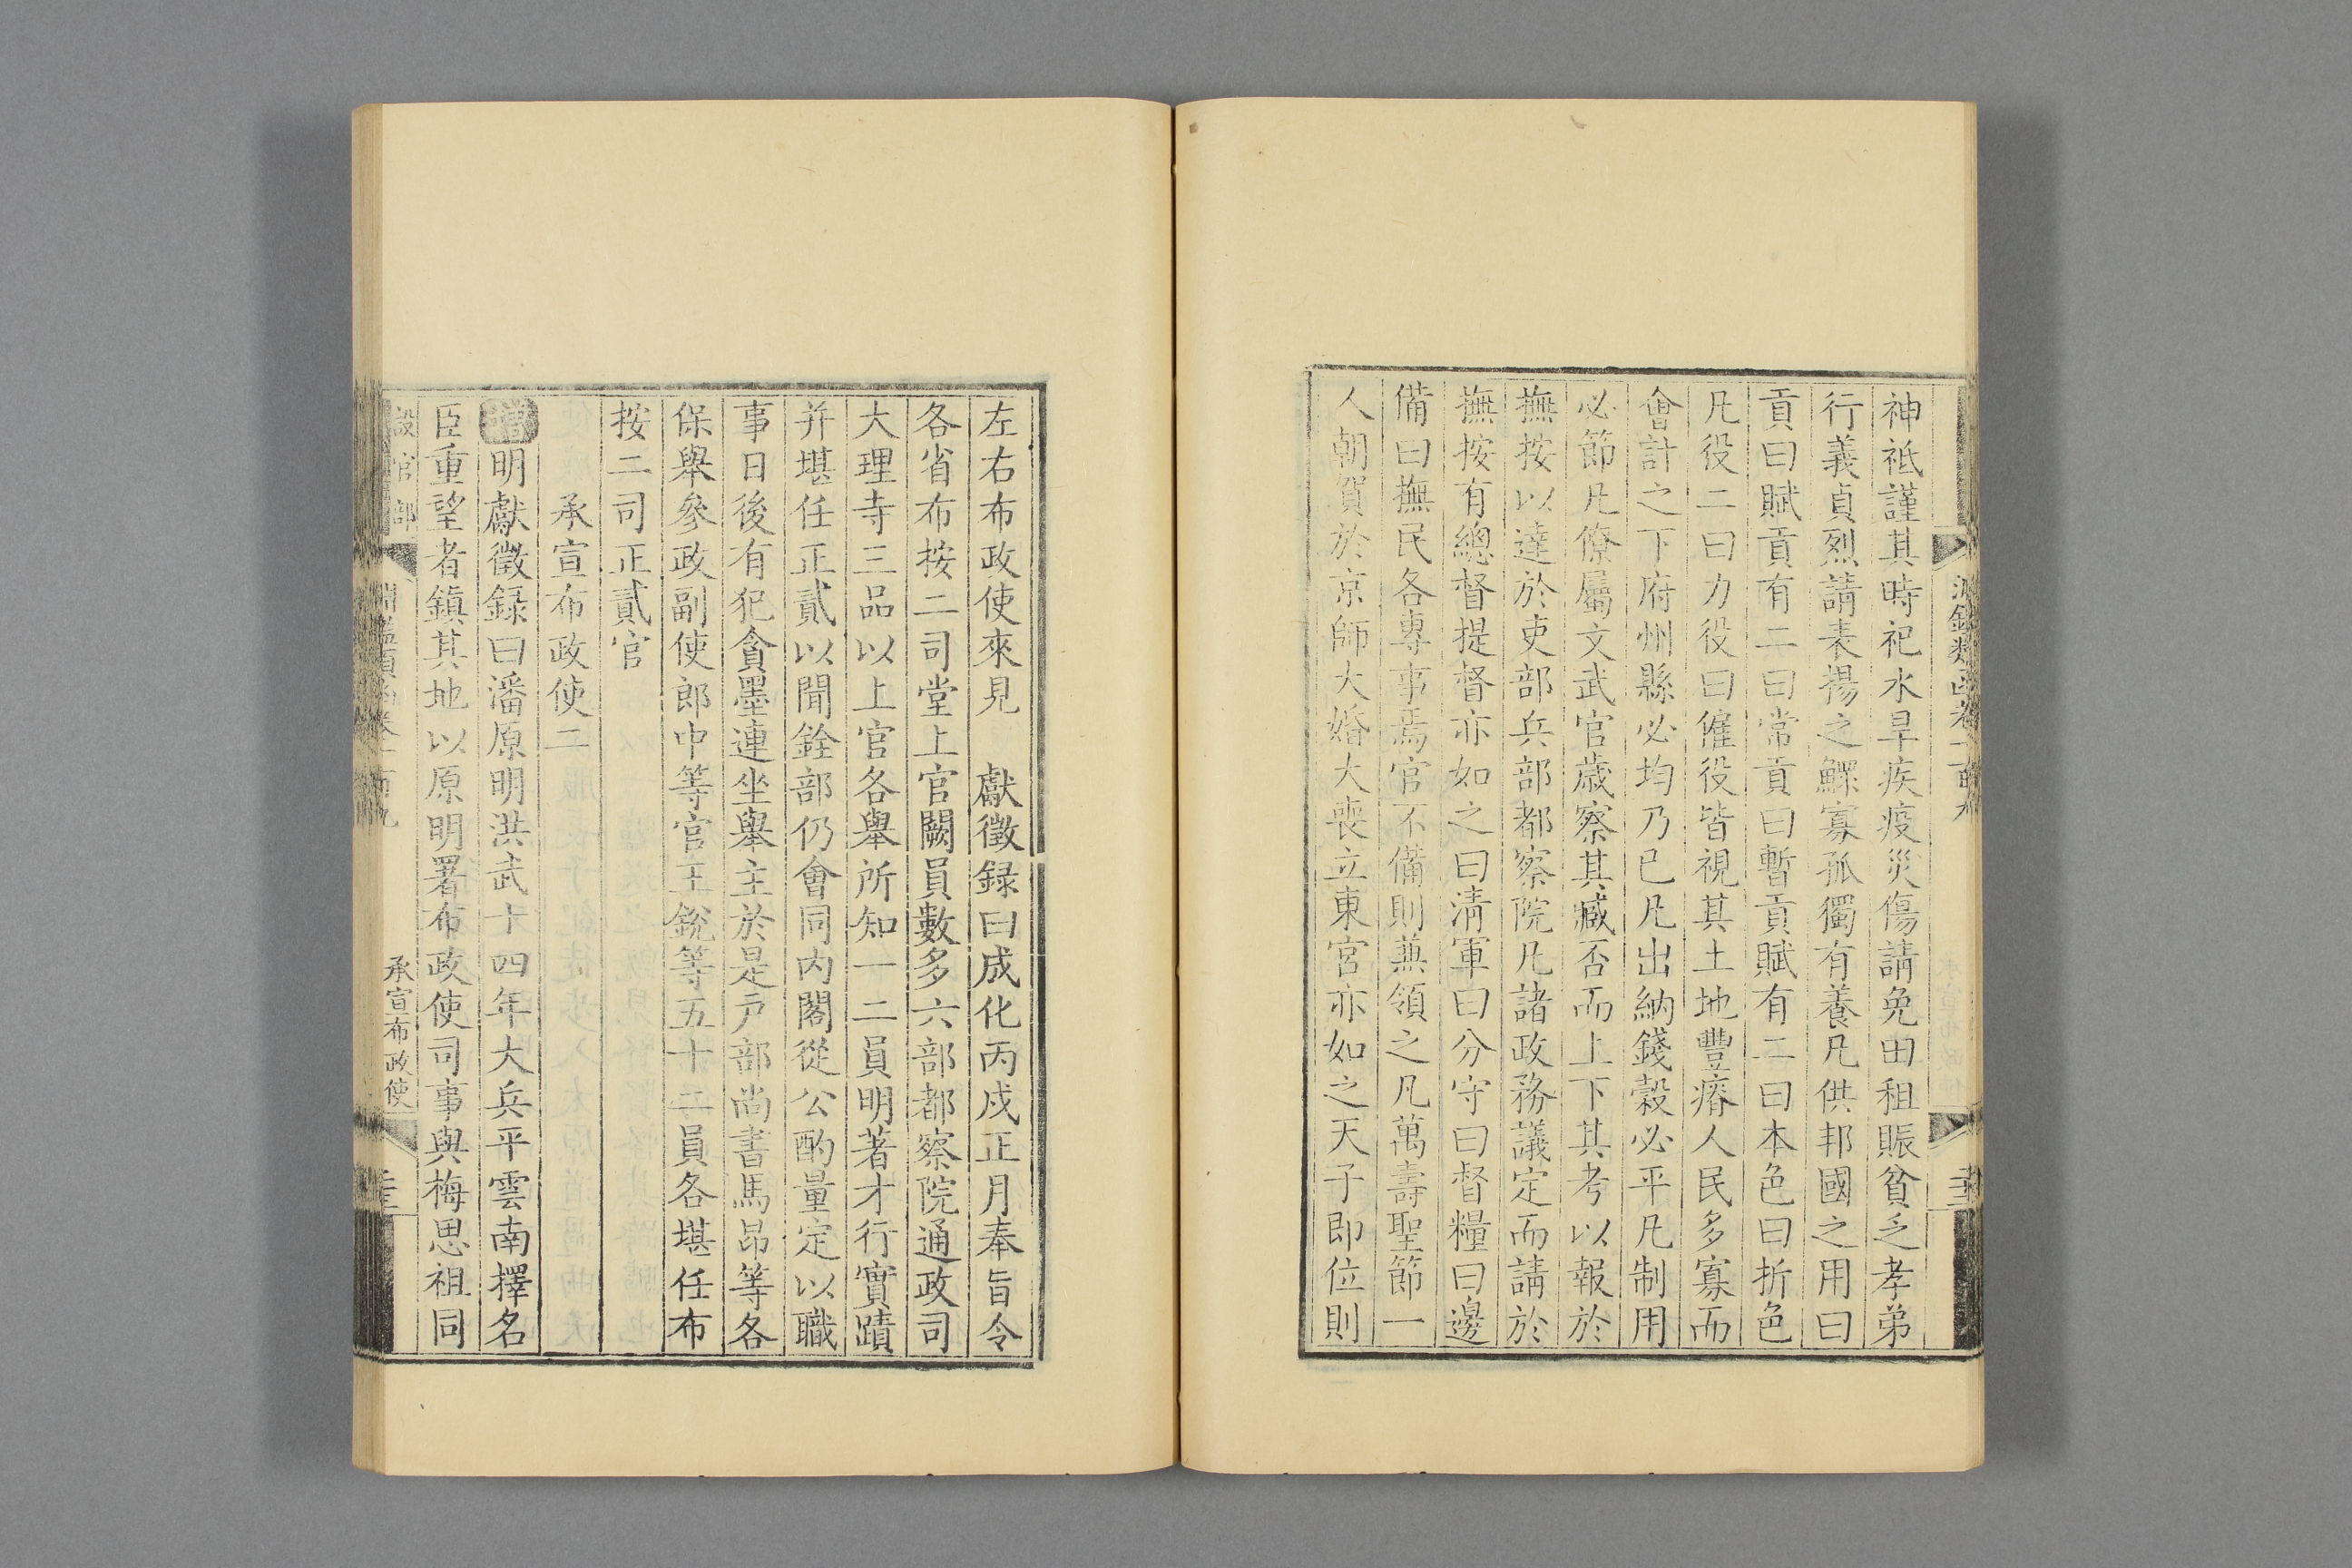 神祇謹其時祀水旱疾疫災傷請免田租賑貧乏孝弟
行義貞烈請表揚之鰥寡孤獨有養凡供邦國之用曰
貢曰賦貢有二曰常貢曰暫貢賦有二曰本色曰折色
凡役二曰力役曰僱役皆視其土地豐瘠人民多寡而
會計之下府州縣必均乃已凡出納錢穀必平凡制用
必節凡僚屬文武官歲察其臧否而上下其考以報於
撫按以達於吏部兵部都察院凡諸政務議定而請於
撫按有總督提督亦如之曰淸軍曰分守曰督糧曰邊
備曰撫民各專事焉官不備則兼領之凡萬壽聖節一
人朝賀於京師大婚大喪立東宮亦如之天子即位則
左右布政使來見　獻徵録曰成化丙戍正月奉旨令
各省布按二司堂上官闕員數多六部都察院通政司
大理寺三品以上官各舉所知一二員明著才行實蹟
并堪任正貳以聞銓部仍會同内閣從公酌量定以職
事日後有犯貪墨連坐舉主於是戶部尚書馬昂等各
保舉參政副使郎中等官王銳等五十二員各堪任布
按二司正貳官
承宣布政使二
增明獻徵録曰潘原明洪武十四年大兵平雲南擇名
臣重望者鎮其地以原明署布政使司事與梅思祖同
設官部
承宣布政使